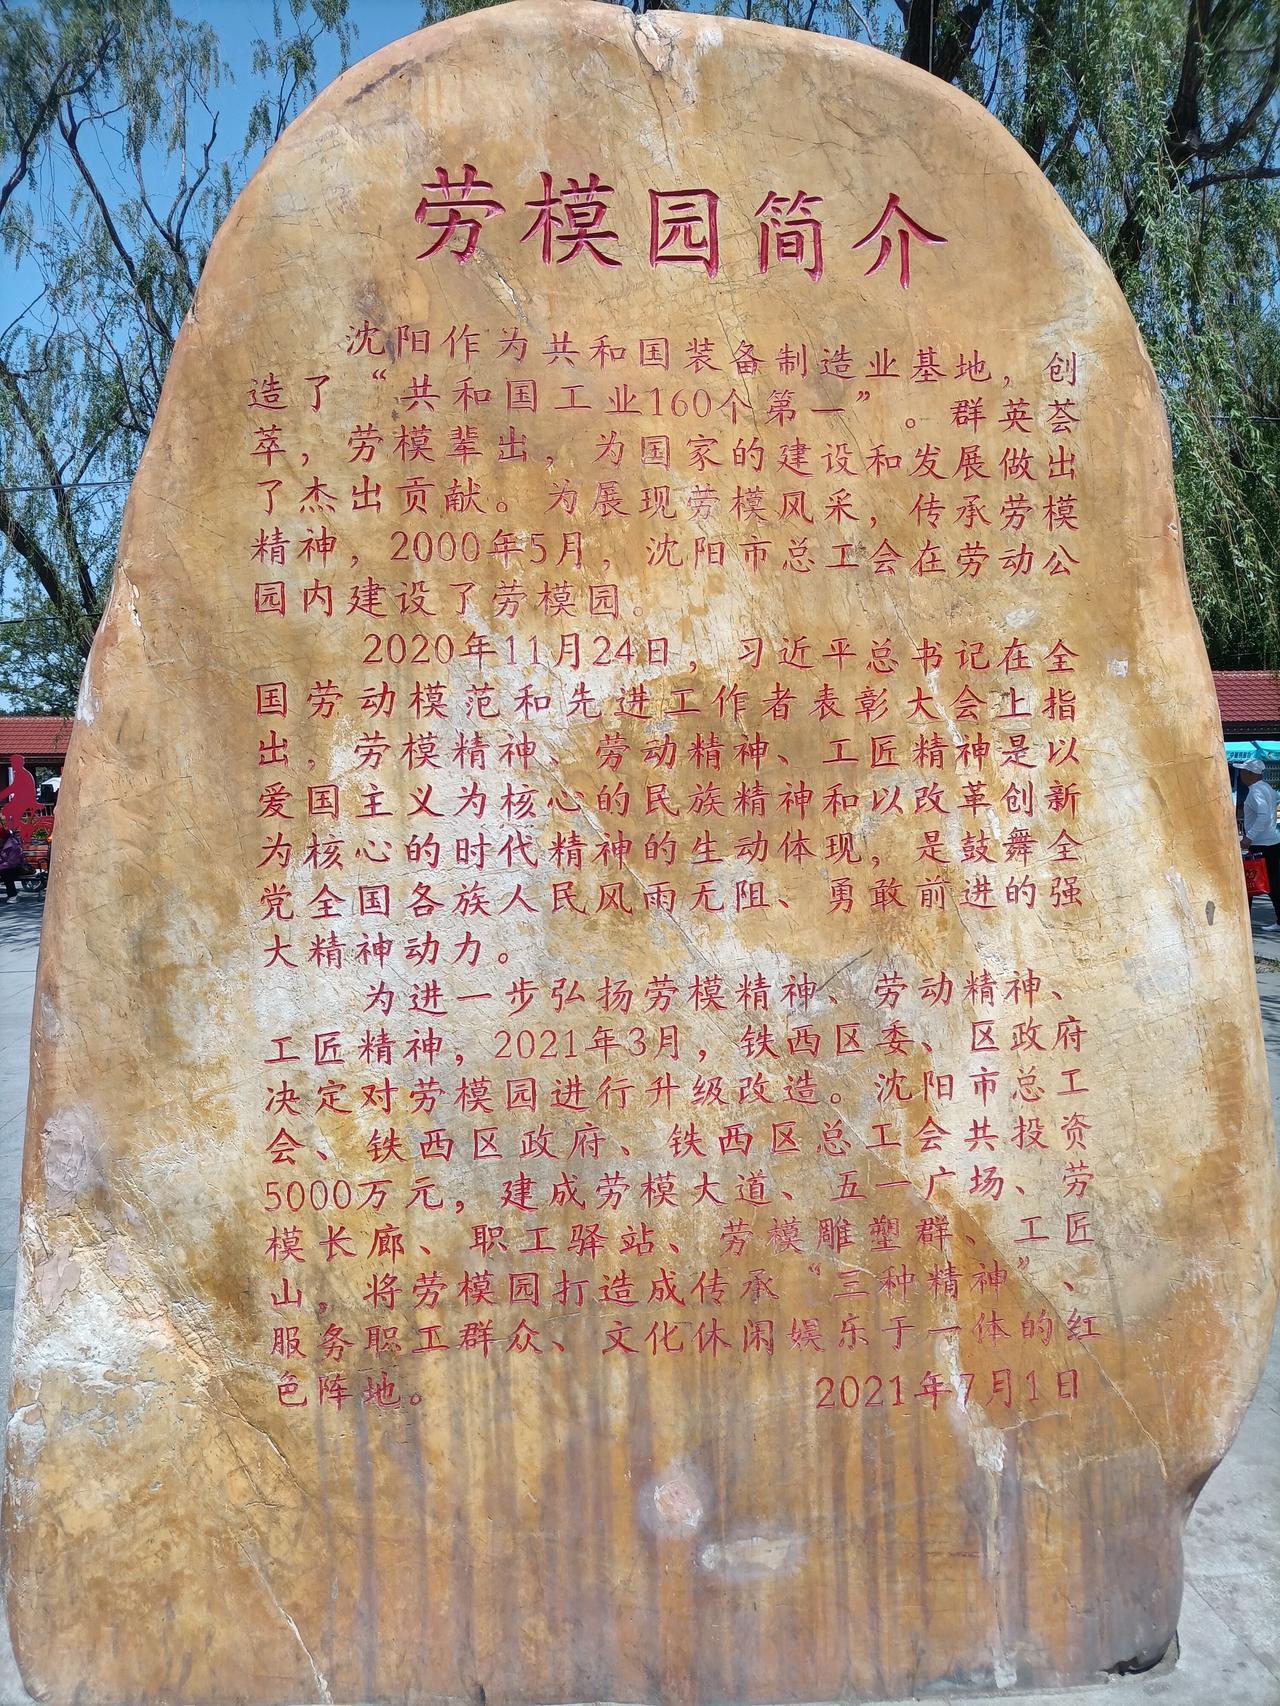 劳模园简介
沈阳作为共和国装备制造业基地，创
造了“共和国工业160个第一”。群英荟
萃，劳模辈出，为国家的建设和发展做出
了杰出贡献。为展现劳模风采，传承劳模
精神，2000年5月，沈阳市总工会在劳动公
园内建设了劳模园。
2020年11月24日，习近平总书记在全
国劳动模范和先进工作者表彰大会上指
出，劳模精神、劳动精神、工匠精神是以
爱国主义为核心的民族精神和以改革创新
为核心的时代精神的生动体现，是鼓舞全
党全国各族人民风雨无阻、勇敢前进的强
大精神动力。
为进一步弘扬劳模精神、劳动精神、
工匠精神，2021年3月，铁西区委、区政府
决定对劳模园进行升级改造。沈阳市总工
会、铁西区政府、铁西区总工会共投资
5000万元，建成劳模大道、五一广场、劳
模长廊、职工驿站、劳模雕塑群、工匠
山，将劳模园打造成传承“三种精神”、
服务职工群众、文化休闲娱乐于一体的红
色阵地。
2021年7月1日